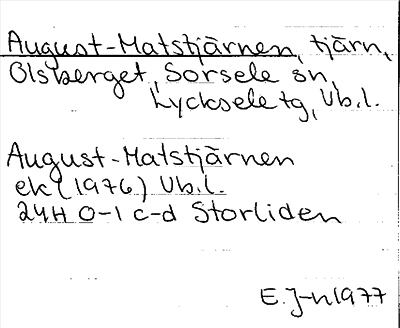 August-Matstjärnen, tjärn,
Olsberget, Sorsele sn,
Lycksele tg, Vb.l.
August-Matstjärnen
ek (1976) Vb.l.
24H 0-1 c-d Storliden
E.J-n 1977